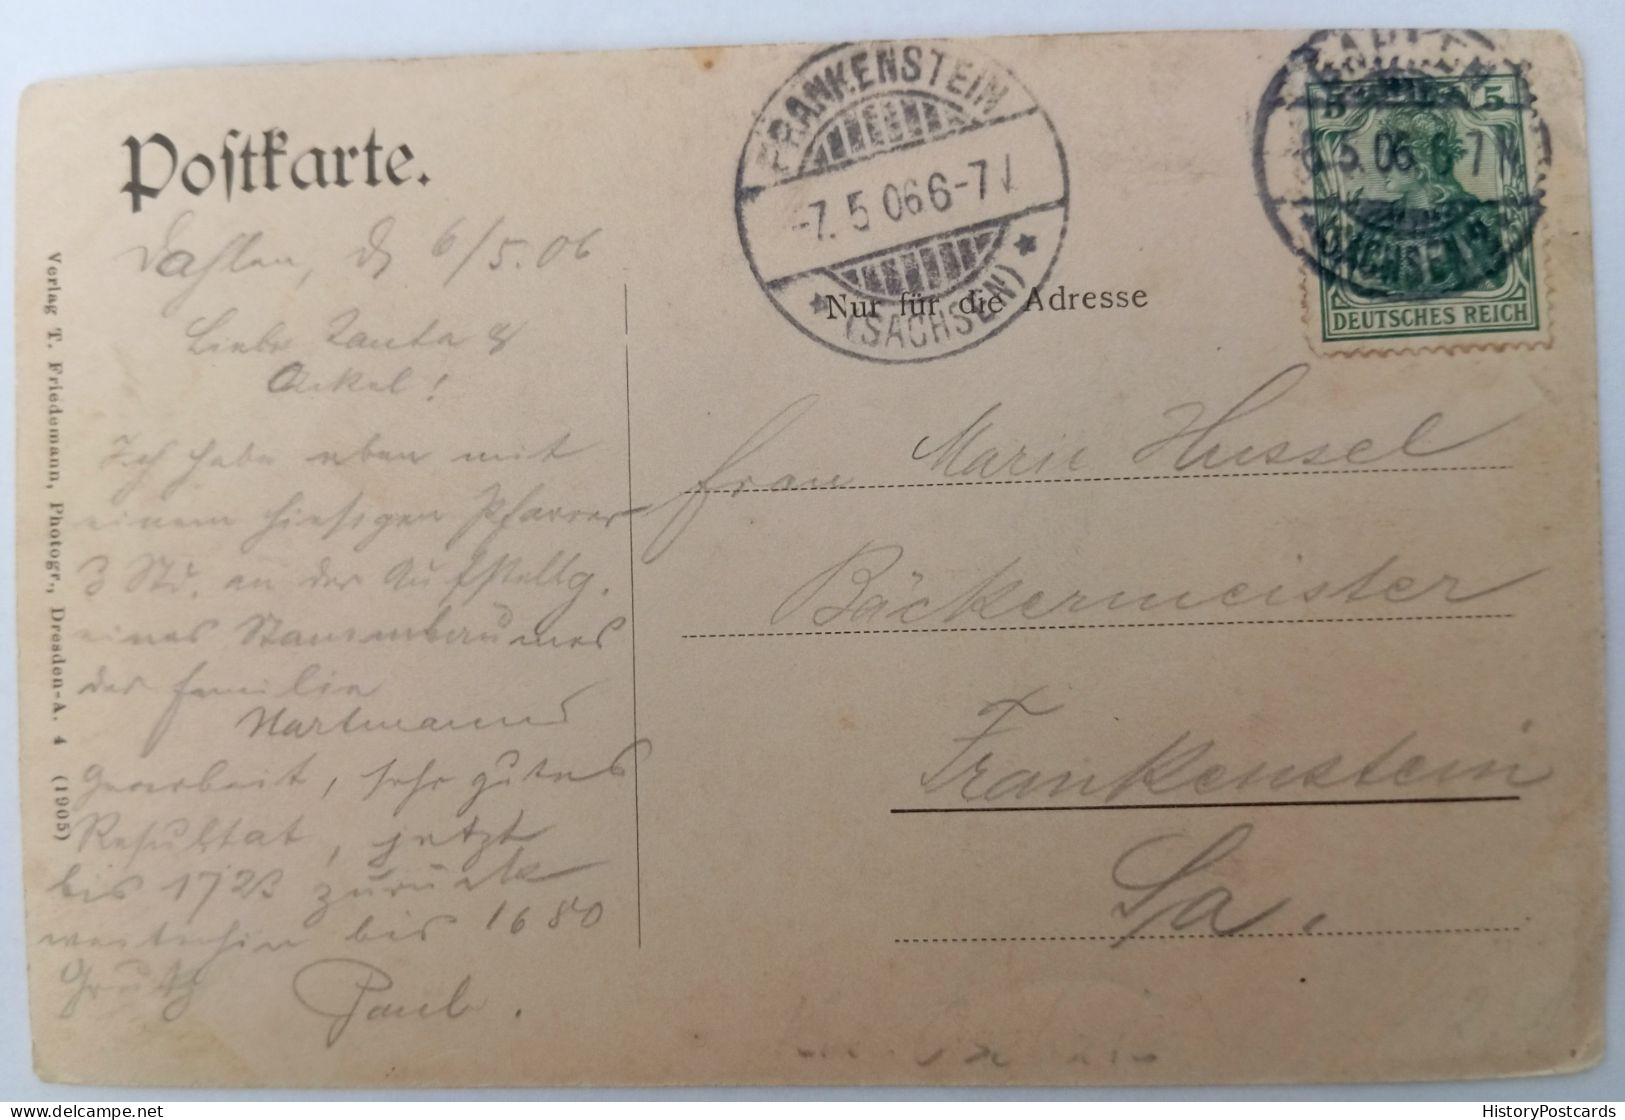 Postkarte.
Dahlen, d. 6/5.06
Liebe Tante &
Onkel!
Ich habe eben mit
einem hiesigen Pfarrer
3 Std. an der Aufstellg.
eines Stammbaumes
der Familie
Hartmann
gearbeitet, sehr gutes
Resultat, jetzt
bis 1723 zurück
weiterhin bis 1680
Gruß
Paul.
Verlag T. Friedemann, Photogr., Dresden-A. 4 (1905)
FRANKENSTEIN
-7.5 06 6-7
(SACHSEN)
Nur für die Adresse
Frau Marie Hussel
Bäckermeister
Frankenstein
Sa.
DAHLEN
6.5.06. 6-7N
(SACHSEN)
5 5
DEUTSCHES REICH
HistoryPostcards
delcampe.net